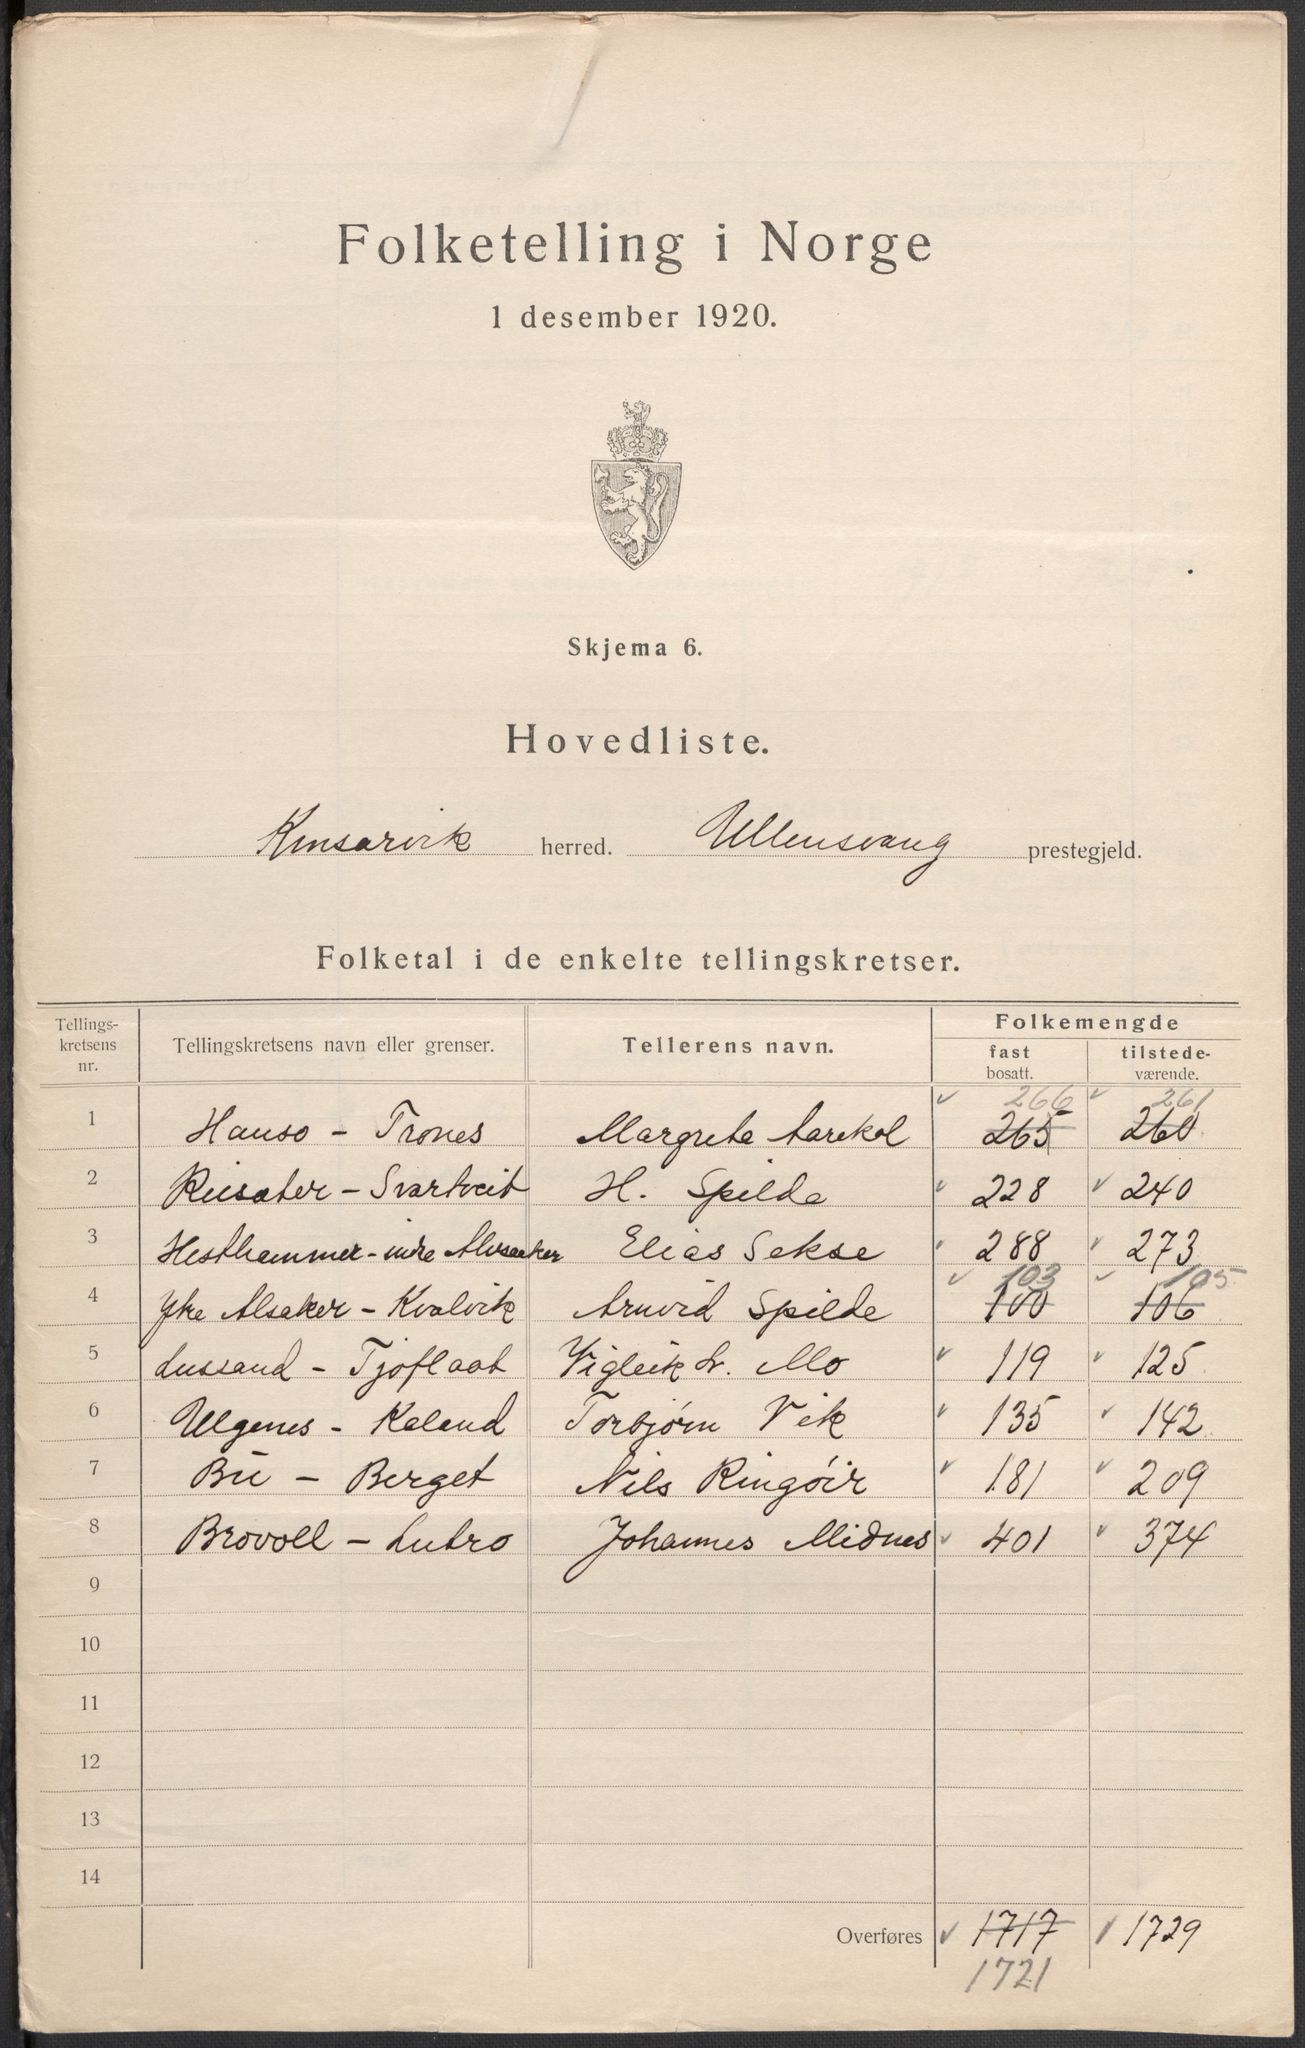 Folketelling i Norge
1 desember 1920.
Skjema 6.
Hovedliste.
Kinsarvik herred. Ullensvang prestegjeld.
Folketal i de enkelte tellingskretser.
Tellings-kretsens nr. Tellingskretsens navn eller grenser. Tellerens navn. Folkemengde
fast bosatt. tilstede-værende.
266 261
1 Hauso - Trones Margrete Aarekol 265 260
2 Riisæter - Svartveit H. Spilde 228 240
3 Hesthammer - indre Alvsaaker Elias Sekse 288 273
103 105
4 Ytre Alsaker - Kvalvik Arnvid Spilde 100 106
5 Lussand - Tjoflaat Vigleik Mo 119 125
6 Ulgenes - Kaland Torbjørn Vik 135 142
7 Bu - Berget Nils Ringøir 181 209
8 Brovoll - Lutro Johannes Midnes 401 374
9
10
11
12
13
14
Overføres 1717 1729
1721